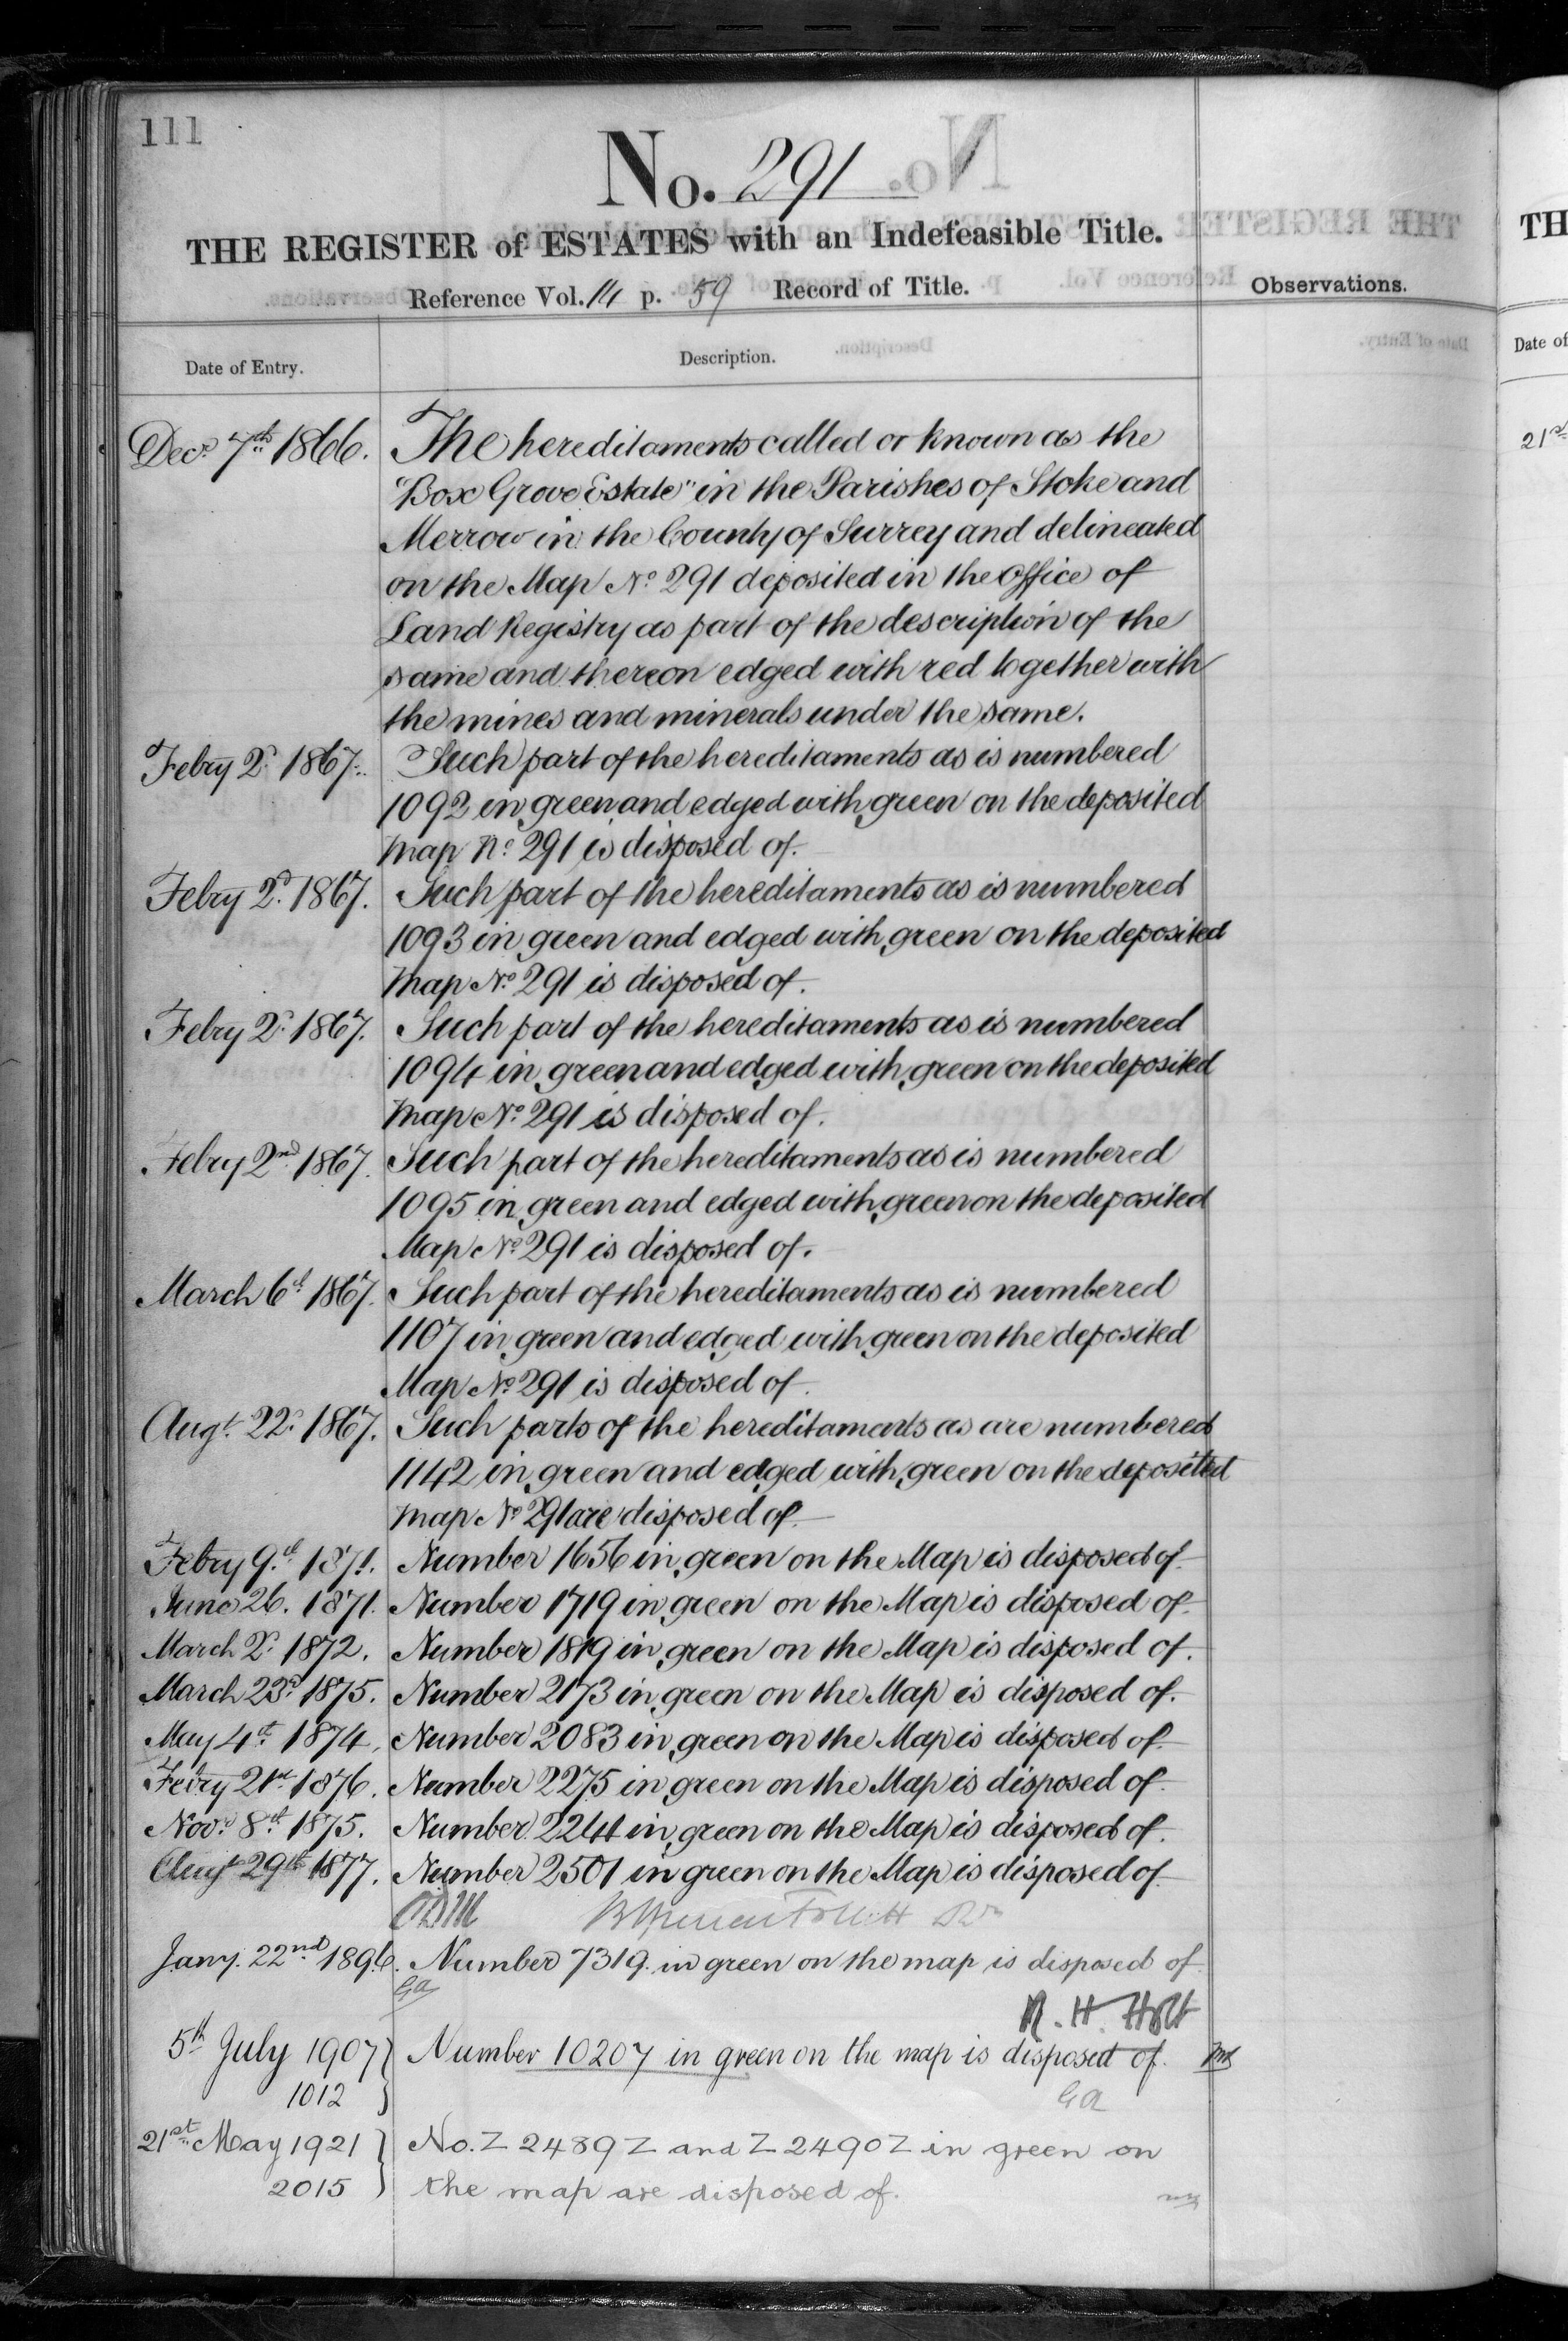 111
No. 291
THE REGISTER of ESTATES with an Indefeasible Title.
Reference Vol. 14 p. 59 Record of Title.
Observations.
Date of Entry.
Description.
Decr. 7th 1866. The hereditaments called or known as the
"Box Grove Estate" in the Parishes of Stoke and
Merrow in the County of Surrey and delineated
on the Map No. 291 deposited in the Office of
Land Registry as part of the description of the
same and thereon edged with red together with
the mines and minerals under the same.
Febry 2d. 1867. Such part of the hereditaments as is numbered
1092 in green and edged with green on the deposited
map No. 291 is disposed of.
Febry 2d. 1867. Such part of the hereditaments as is numbered
1093 in green and edged with green on the deposited
map No. 291 is disposed of.
Febry 2d. 1867. Such part of the hereditaments as is numbered
1094 in green and edged with green on the deposited
map No. 291 is disposed of.
Febry 2nd. 1867. Such part of the hereditaments as is numbered
1095 in green and edged with green on the deposited
Map No. 291 is disposed of.
March 6th 1867. Such part of the hereditaments as is numbered
1107 in green and edged with green on the deposited
Map No. 291 is disposed of.
Augt. 22d. 1867. Such parts of the hereditaments as are numbered
1142 in green and edged with green on the deposited
map No. 291 are disposed of.
Febry 9th. 1871. Number 1656 in green on the Map is disposed of.
June 26. 1871. Number 1719 in green on the Map is disposed of.
March 2d. 1872. Number 1819 in green on the Map is disposed of.
March 23d. 1875. Number 2173 in green on the Map is disposed of.
May 4th. 1874. Number 2083 in green on the Map is disposed of.
Febry 21st. 1876. Number 2275 in green on the Map is disposed of.
Novr. 8th. 1875. Number 2244 in green on the Map is disposed of.
Augt 29th 1877. Number 2501 in green on the Map is disposed of.
Jany. 22nd 1896. Number 7319 in green on the map is disposed of.
GA
R. H. Holt
5th July 1907 } Number 10207 in green on the map is disposed of.
1012 }
GA
21st May 1921 } No. Z 2489 Z and Z 2490 Z in green on
2015 } the map are disposed of.
TH
Date of
21st